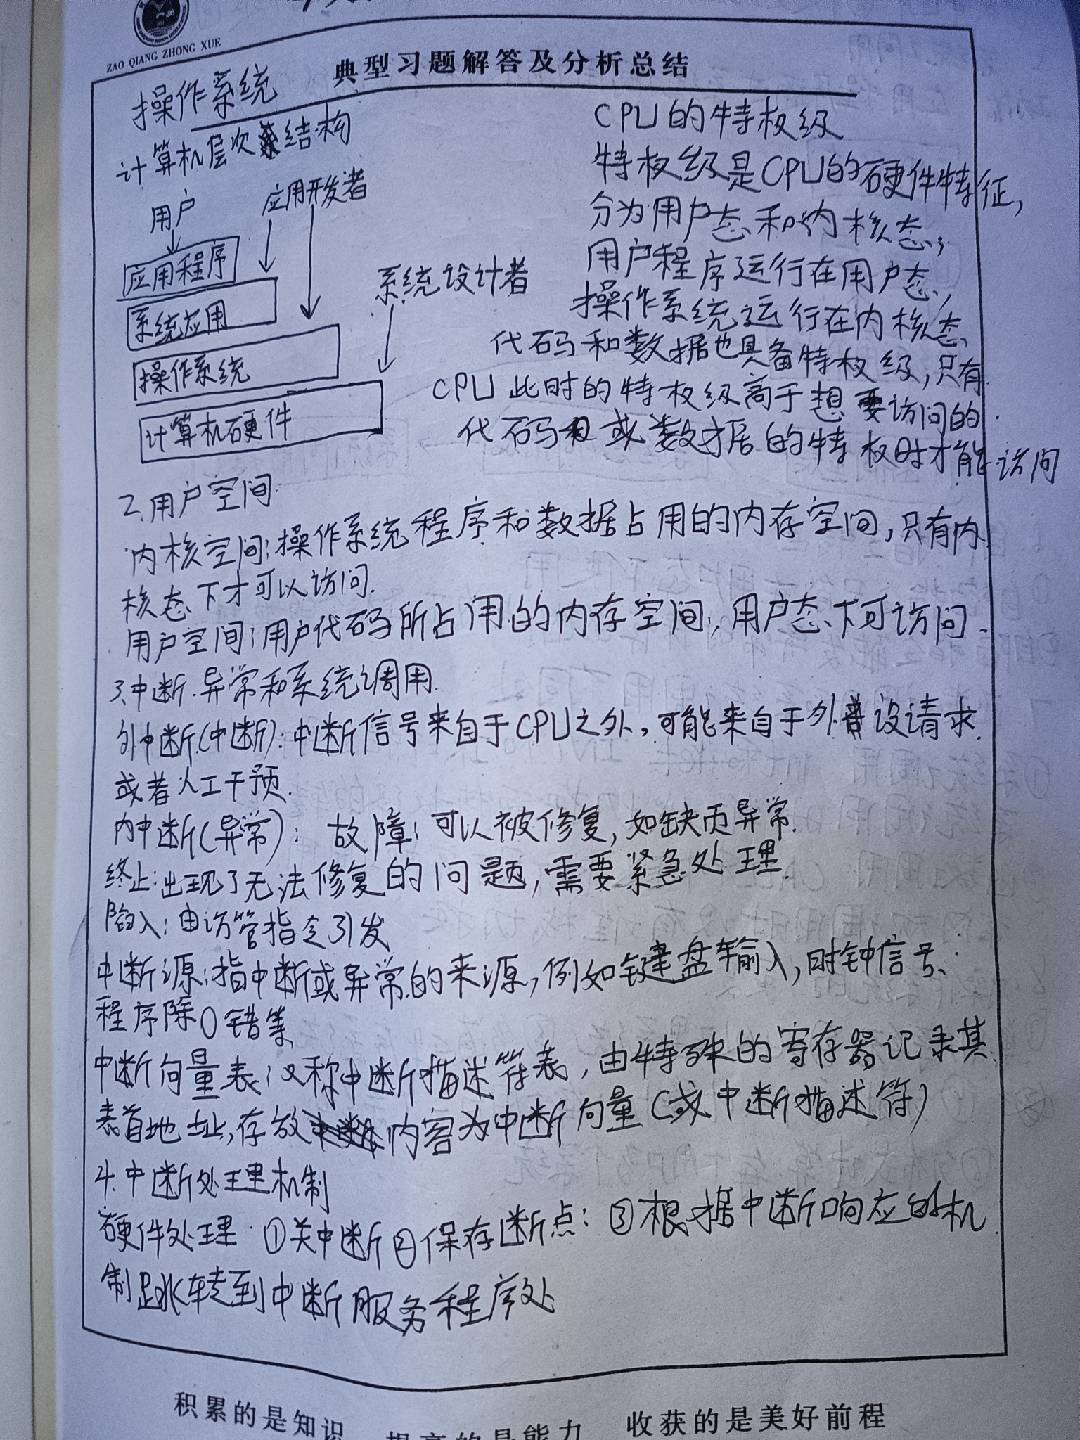 ZAO QIANG ZHONG XUE
典型习题解答及分析总结
操作系统
计算机层次结构
用户
应用开发者
系统设计者
应用程序
系统应用
操作系统
计算机硬件
CPU的特权级
特权级是CPU的硬件特征,
分为用户态和内核态,
用户程序运行在用户态,
操作系统运行在内核态
代码和数据也具备特权级,只有
CPU此时的特权级高于想要访问的
代码或数据的特权时才能访问
2.用户空间
内核空间:操作系统程序和数据占用的内存空间,只有内
核态下才可以访问.
用户空间:用户代码所占用的内存空间,用户态下可访问.
3.中断.异常和系统调用.
外中断(中断):中断信号来自于CPU之外,可能来自于外设请求
或者人工干预.
内中断(异常): 故障:可以被修复,如缺页异常.
终止:出现了无法修复的问题,需要紧急处理.
陷入:由访管指令引发
中断源:指中断或异常的来源,例如键盘输入,时钟信号、
程序除0错等
中断向量表:又称中断描述符表,由特殊的寄存器记录其
表首地址,存放内容为中断向量(或中断描述符)
4.中断处理机制
硬件处理 ①关中断②保存断点:③根据中断响应的机
制跳转到中断服务程序处
积累的是知识 提高的是能力 收获的是美好前程